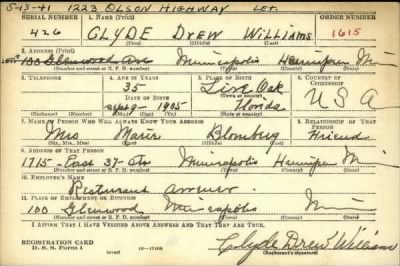 5-13-41 1223 OLSON HIGHWAY LET.
SERIAL NUMBER 1. NAME (Print) ORDER NUMBER
426 CLYDE DREW WILLIAMS 1615
(First) (Middle) (Last)
2. ADDRESS (Print)
100 Glenwood Ave Minneapolis Hennepin Mi
(Number and street or R. F. D. number) (Town) (County) (State)
3. TELEPHONE 4. AGE IN YEARS 5. PLACE OF BIRTH 6. COUNTRY OF CITIZENSHIP
35 Live Oak
DATE OF BIRTH (Town or county) U S A
Sept 9 - 1905 Florida
(Exchange) (Number) (Mo.) (Day) (Yr.) (State or country)
7. NAME OF PERSON WHO WILL ALWAYS KNOW YOUR ADDRESS 8. RELATIONSHIP OF THAT PERSON
Mrs Marie Blomberg Friend
(Mr., Mrs., Miss) (First) (Middle) (Last)
9. ADDRESS OF THAT PERSON
1715 - East 37 - Str Minneapolis Hennepin Mi
(Number and street or R. F. D. number) (Town) (County) (State)
10. EMPLOYER'S NAME
Resturant
11. PLACE OF EMPLOYMENT OR BUSINESS
100 Glenwood Minneapolis
(Number and street or R. F. D. number) (Town) (County) (State)
I AFFIRM THAT I HAVE VERIFIED ABOVE ANSWERS AND THAT THEY ARE TRUE.
REGISTRATION CARD
D. S. S. Form 1 Clyde Drew Williams
(over) (Registrant's signature)